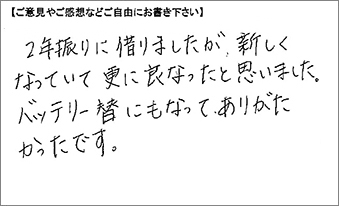 【ご意見やご感想などご自由にお書き下さい】
2年振りに借りましたが、新しく
なっていて更に良なったと思いました。
バッテリー替にもなって、ありがた
かったです。